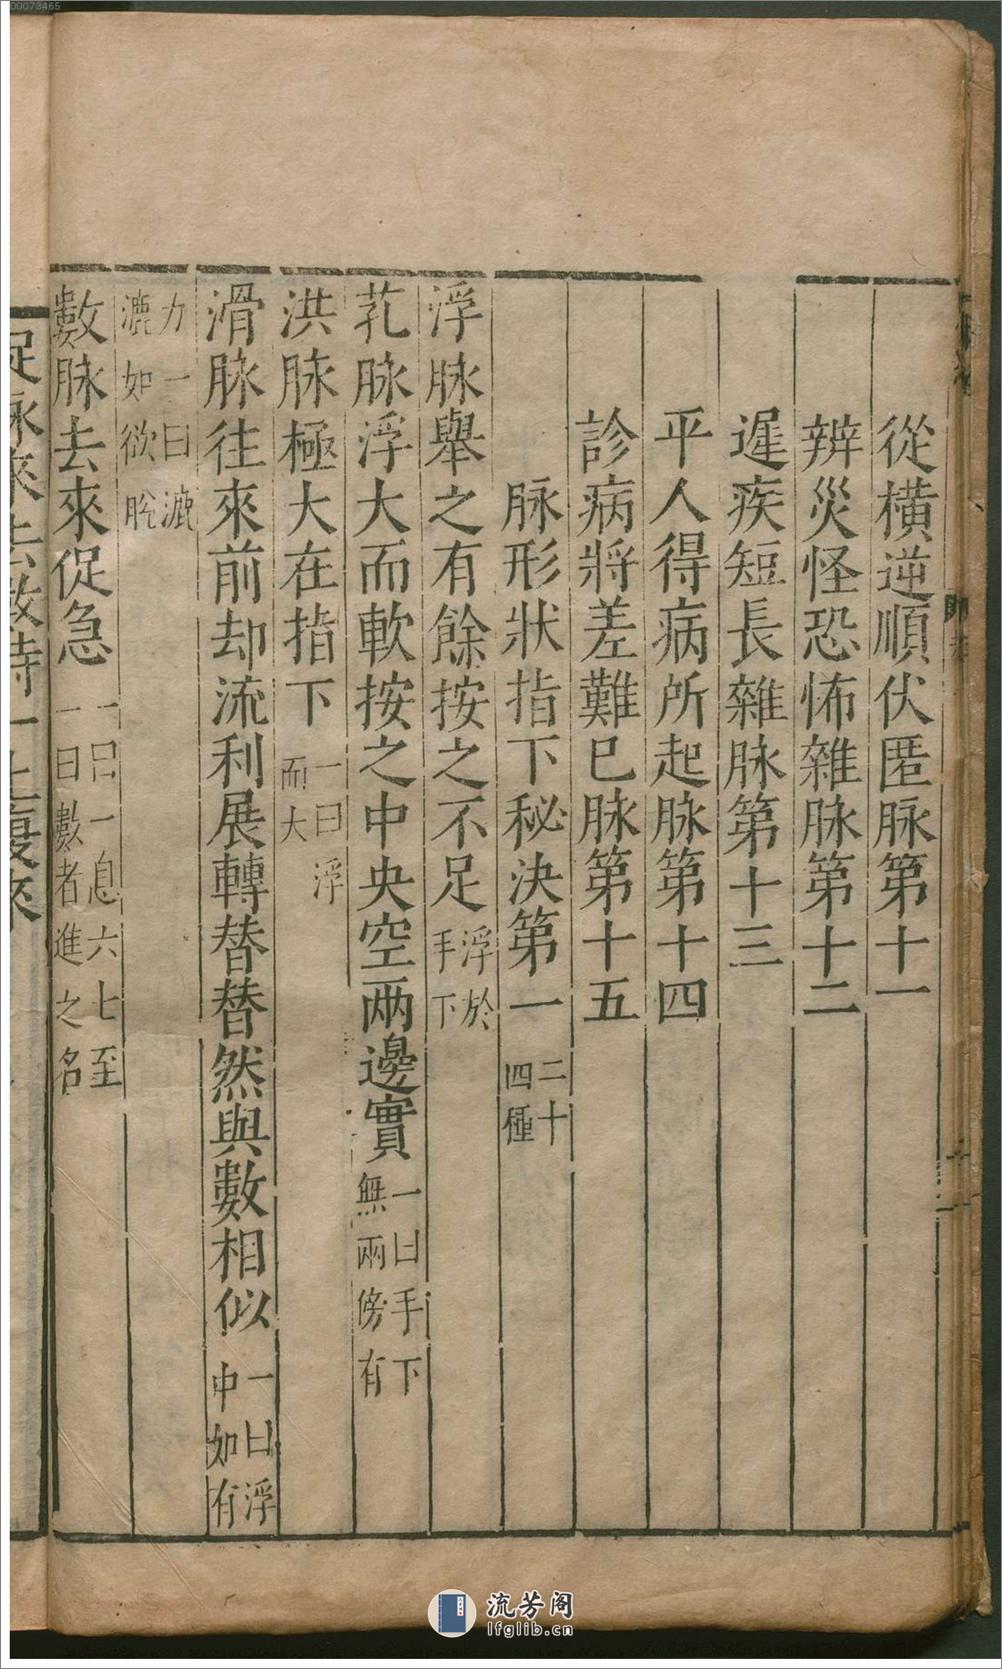 從橫逆順伏匿脉第十一
辨災怪恐怖雜脉第十二
遲疾短長雜脉第十三
平人得病所起脉第十四
診病將差難已脉第十五
脉形狀指下秘決第一 二十四種
浮脉舉之有餘按之不足 浮於手下
芤脉浮大而軟按之中央空兩邊實 一曰手下無兩傍有
洪脉極大在指下 一曰浮而大
滑脉往來前却流利展轉替替然與數相似 一曰浮中如有
力一曰漉漉如欲脫
數脉去來促急 一曰一息六七至一曰數者進之名
促脉來去數時一止復來
00073465
流芳阁
lfglib.cn